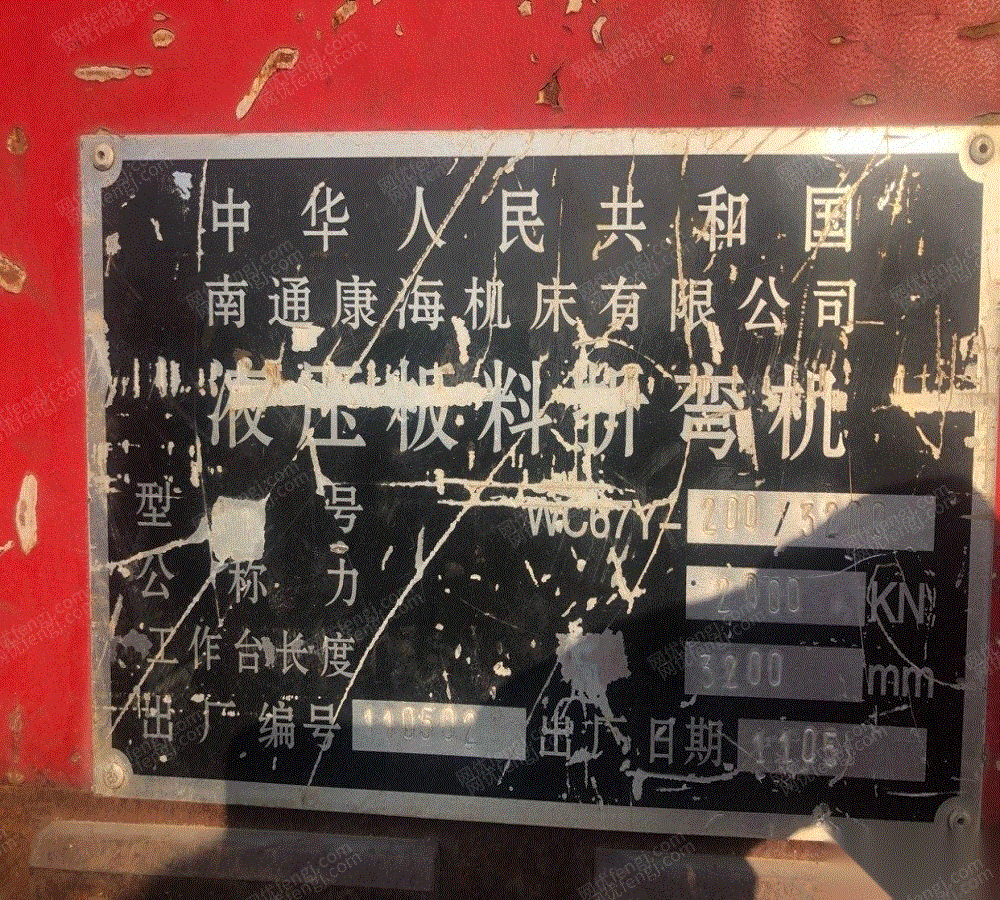 中华人民共和国
南通康海机床有限公司
液压板料折弯机
型号 WC67Y-200/3200
公称力 2000 KN
工作台长度 3200 mm
出厂编号 110502 出厂日期 1105
网优fengj.com